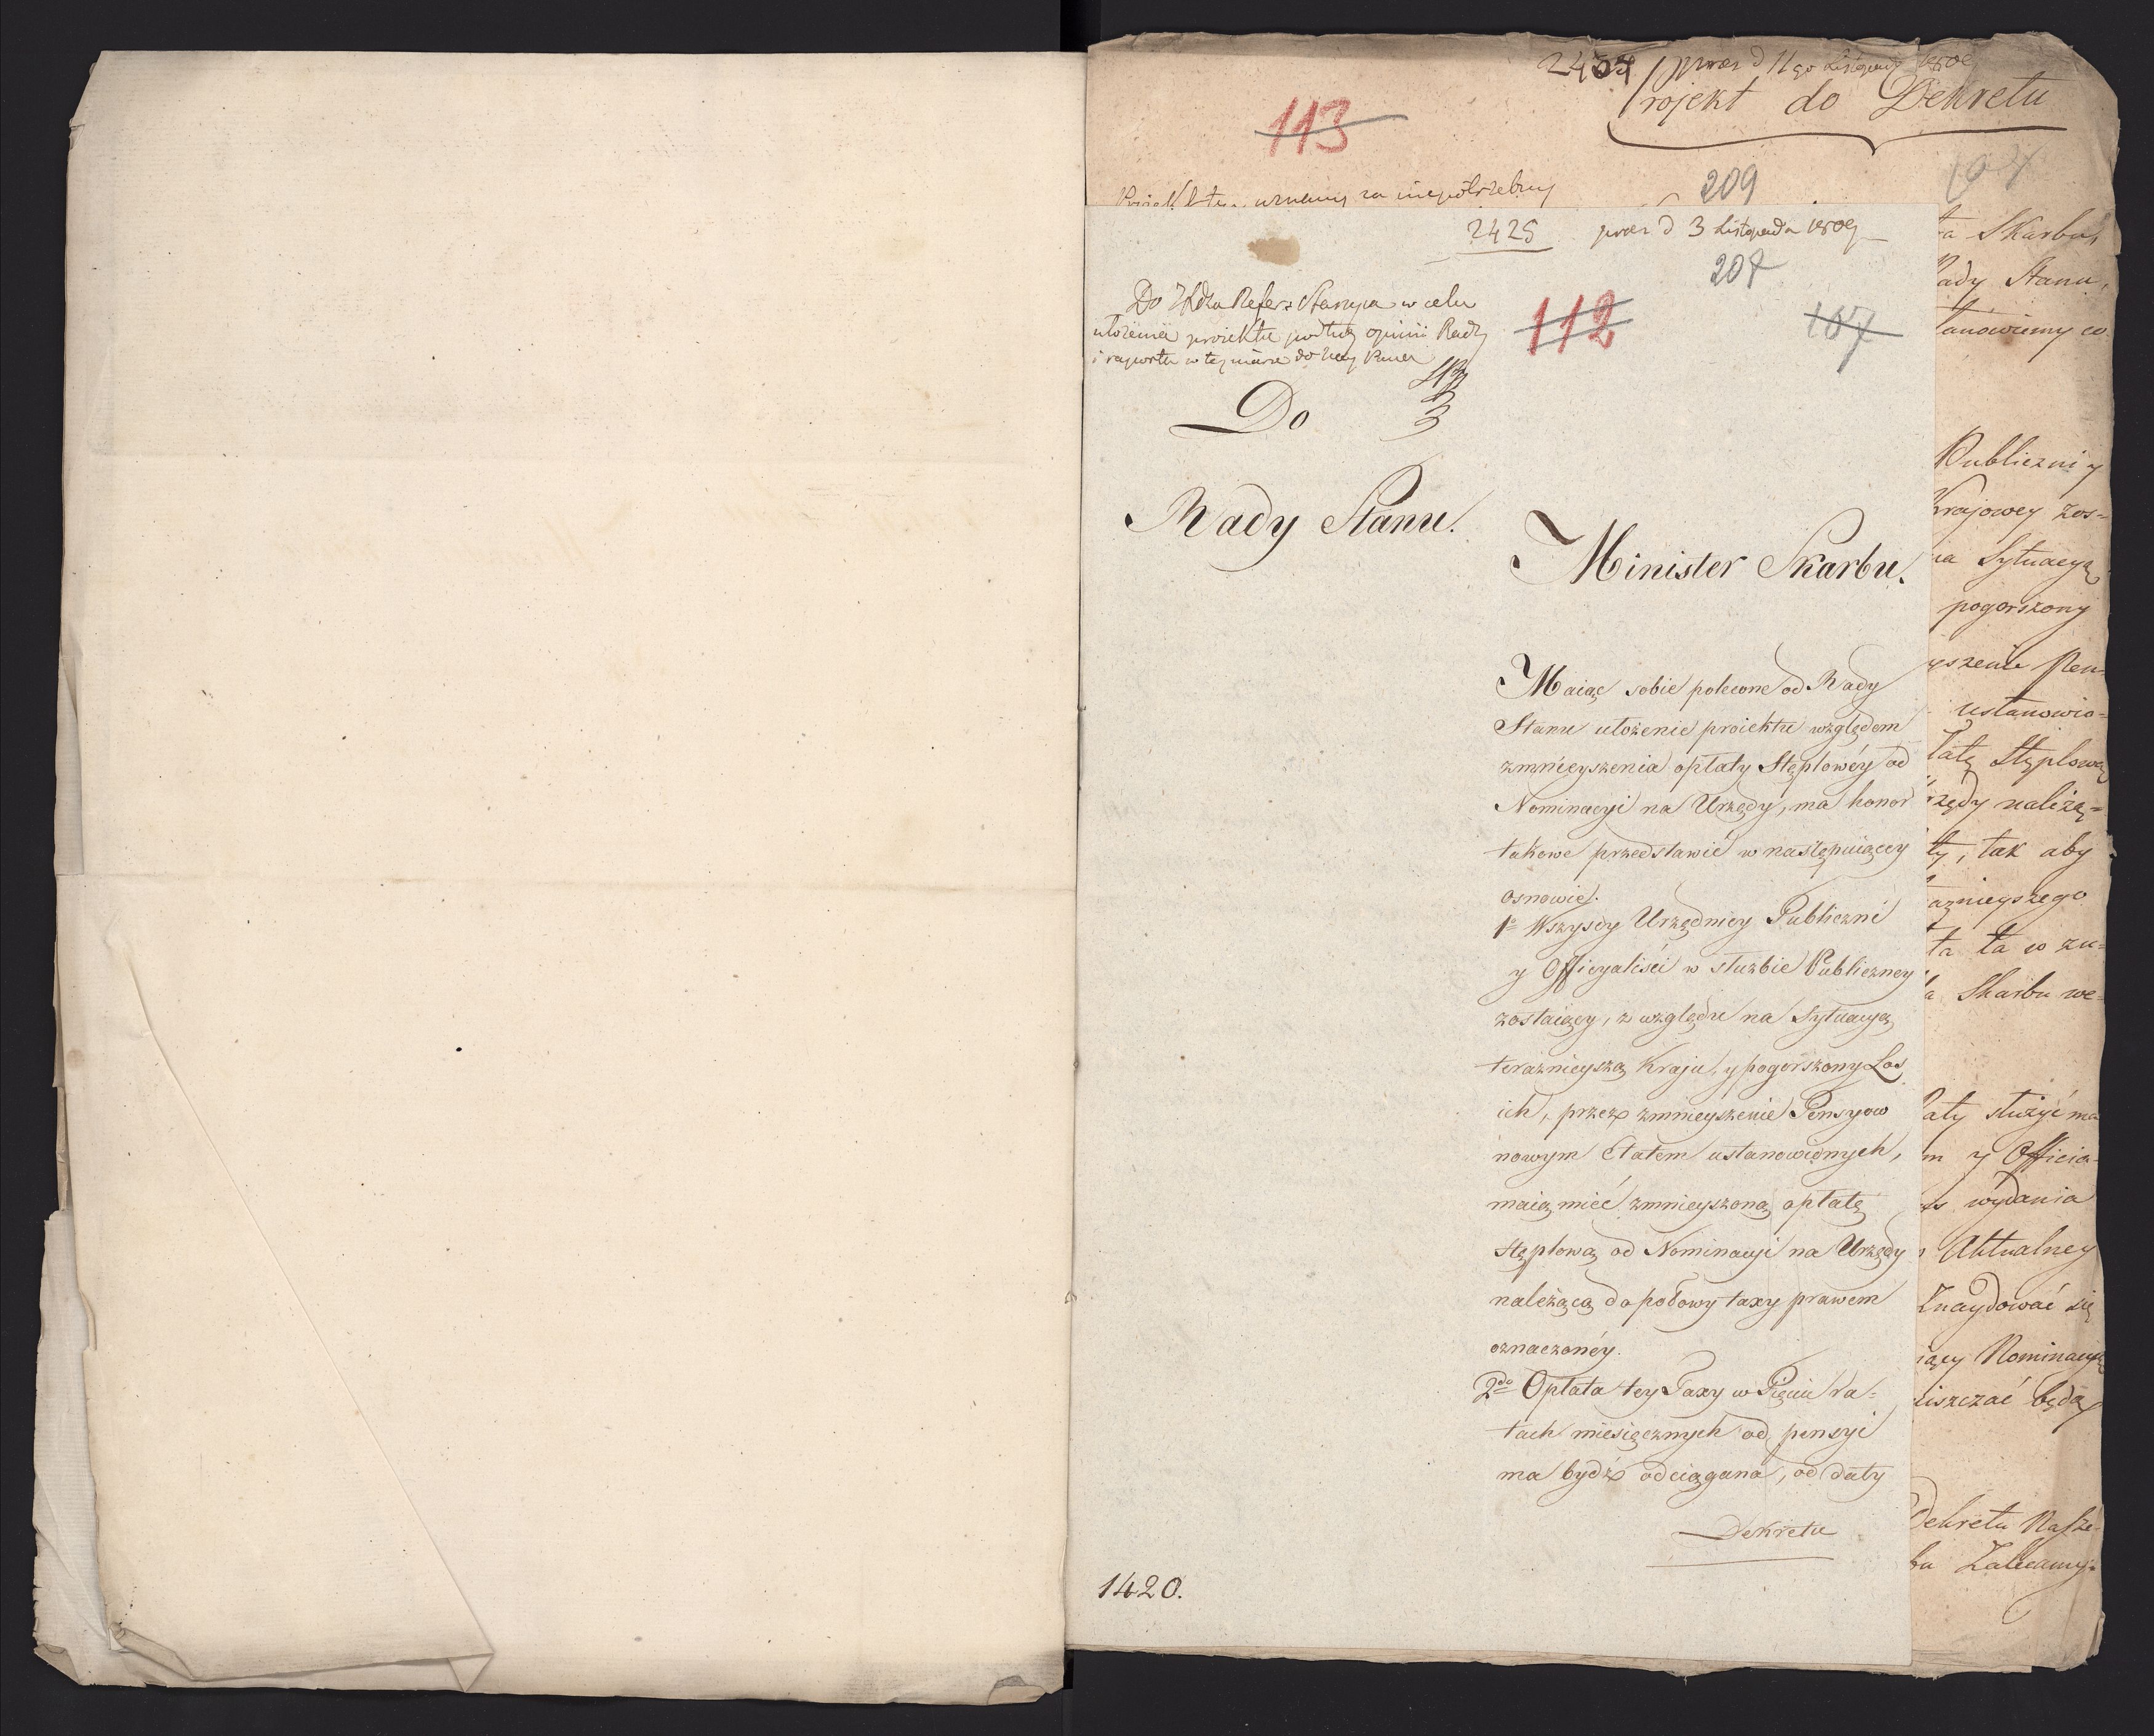 2434 praes d 11go Listopada 1809
Projekt do Dekretu
113
209
uznany za niepotrzebny
2425 praes d 3 Listopada 1809
207
112
107
Do w celu
ułożenia proiektu podług opinii Rady
i raportu w tey mierze do
Do
Rady Stanu.
Minister Skarbu.
Maiąc sobie polecone od Rady
Stanu ułożenie proiektu względem
zmnieyszenia opłaty Stęplowéy od
Nominacyi na Urzędy, ma honor
takowe przedstawić w następuiącey
osnowie.
1o Wszyscy Urzędnicy Publiczni
y Officyaliści w służbie Publiczney
zostaiący, z względu na Sytuacyą
teraznieyszą Kraju, y pogorszony Los
ich, przez zmnieyszenie Pensyow
nowym Etatem ustanowionych,
maią mieć zmnieyszoną opłatę
stęplową od Nominacyi na Urzędy
należącą do połowy taxy prawem
oznaczonéy.
2do Opłata tey Taxy w Pięciu ra=
tach miesięcznych od pensyi
ma bydź odciągana, od daty
Dekretu
1420.
Skarbu,
ady Stanu,
tanowiemy co
Publiczni y
Krajowey zos=
na Sytuacyą
pogorszony
yszenie Pen=
ustanowio=
łatę Stęplową
rzędy należą=
ty, tak aby
aznieyszego
ta ta w zu=
a Skarbu we=
łaty służyć ma
m y Officia=
as wydania
Aktualney
znaydować się
iący Nominacyą
iszczać będą
Dekretu Nasze=
bu Zalecamy.